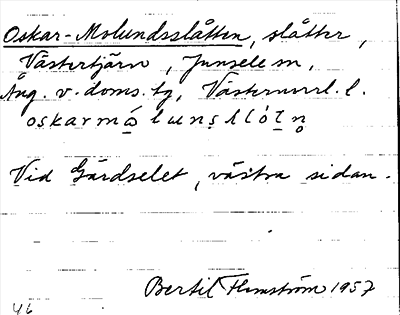 Oskar-Molundsslåtten, slåtter,
Västertjärn, Junsele sn,
Ång. v. doms. tg, Västernorrl. l.
oskarmólunsʂlo̍tn̥
Vid Gärdselet, västra sidan.
Bertil Flemström 1957
46